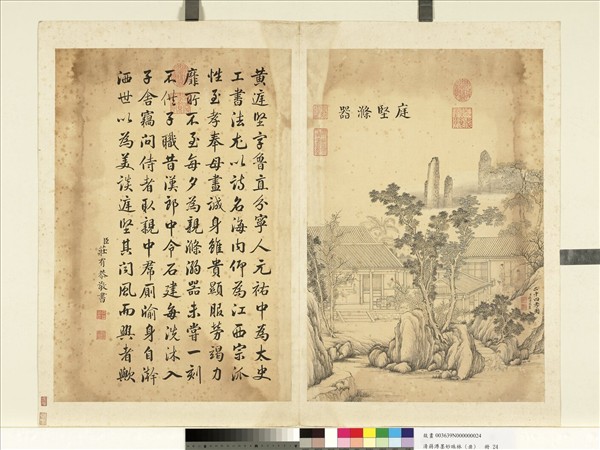 庭堅滌器
黃庭堅字魯直分寧人元祐中為太史
工書法尤以詩名海內仰為江西宗派
性至孝奉母盡誠身雖貴顯服勞竭力
靡所不至每夕為親滌溺器未嘗一刻
不供子職昔漢郎中令石建每洗沐入
子舍竊問侍者取親中帬廁牏身自澣
洒世以為美談庭堅其聞風而興者歟
臣莊有恭敬書
二十四孝圖
故畫 003639N000000024
墨妙珠林（亥） 冊 24